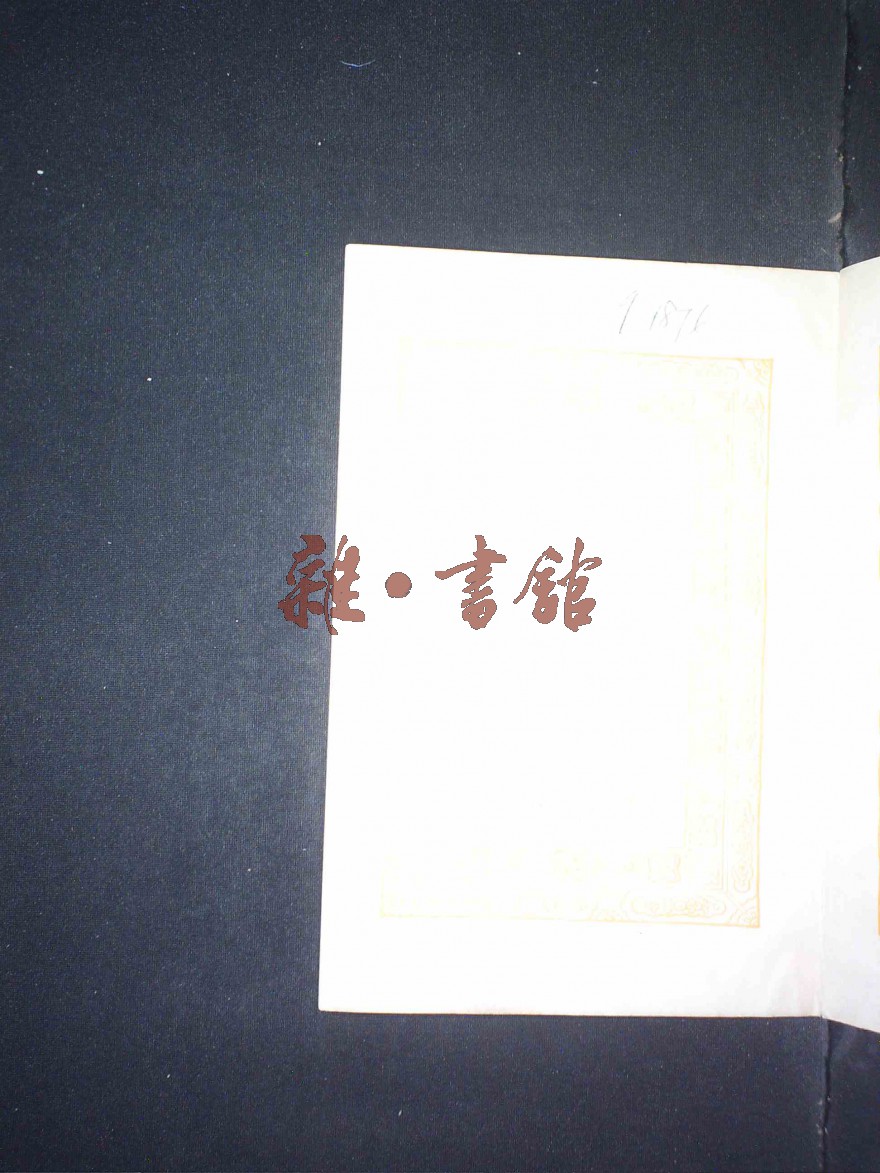 9 1876
雜·書館